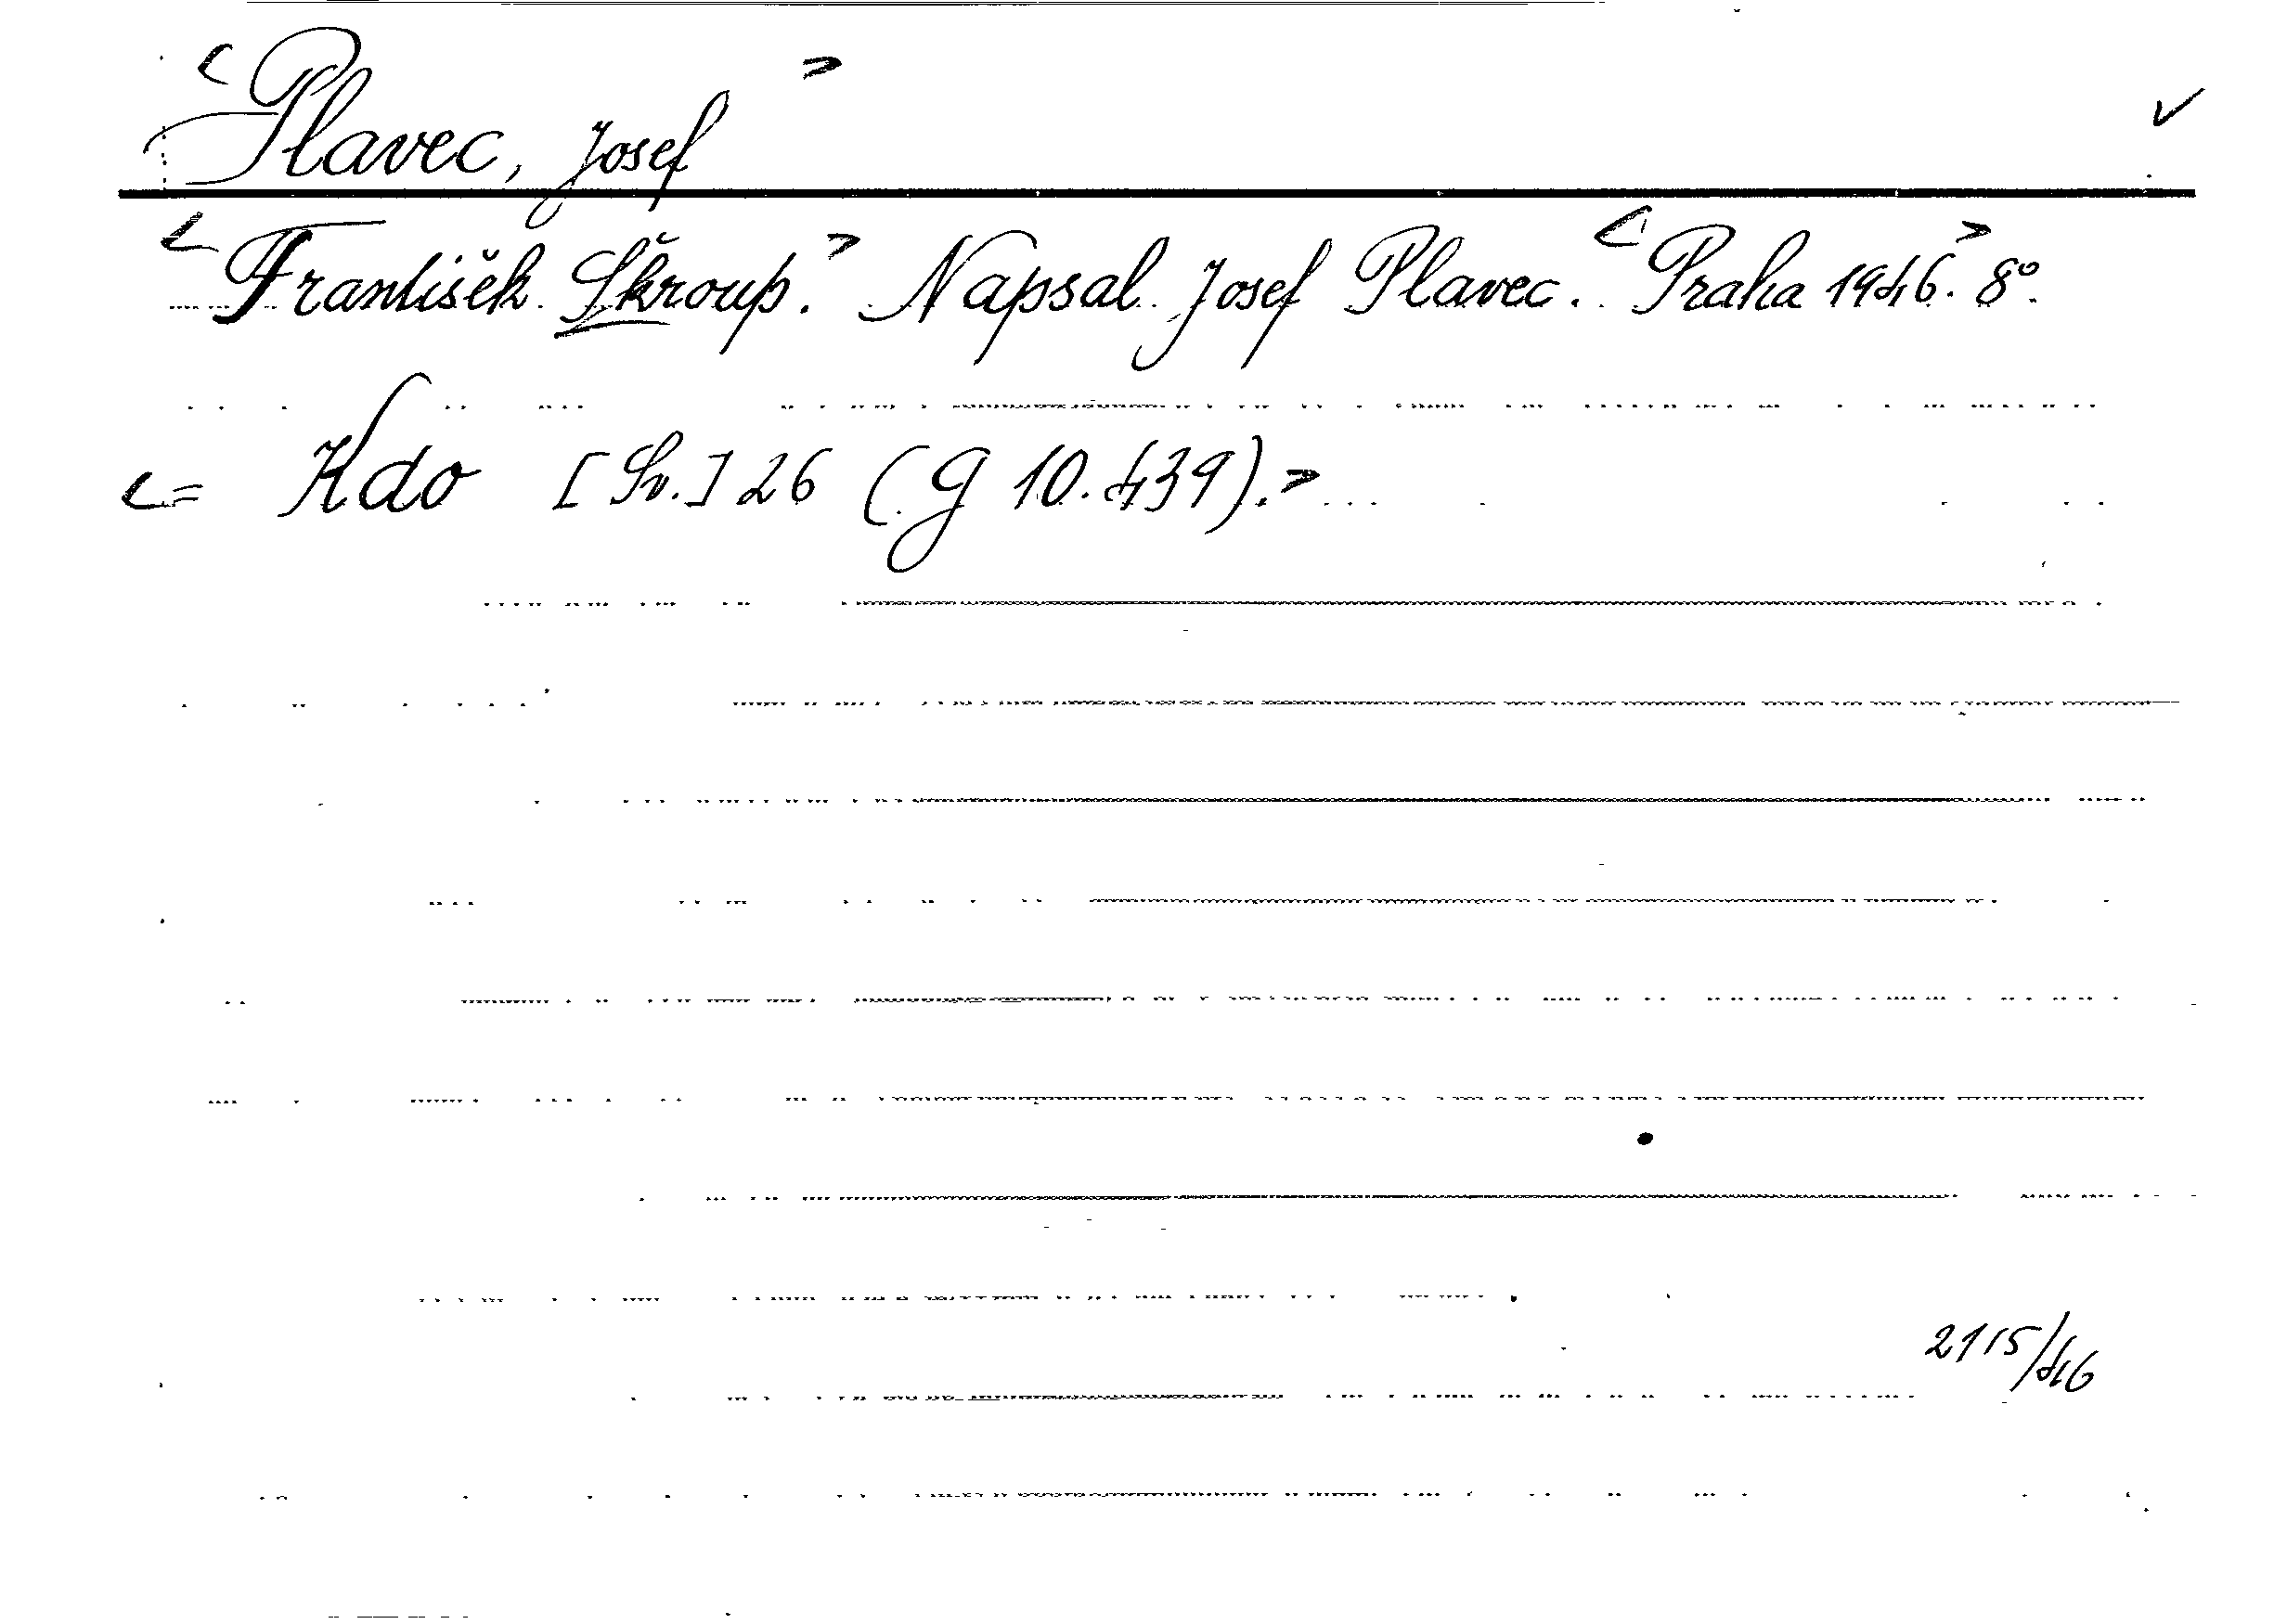 < Plavec, Josef > ✓
< František Škroup. > Napsal Josef Plavec. < Praha 1946. > 8°.
< = Kdo [Sv.] 26 (G 10.439). >
2115/46